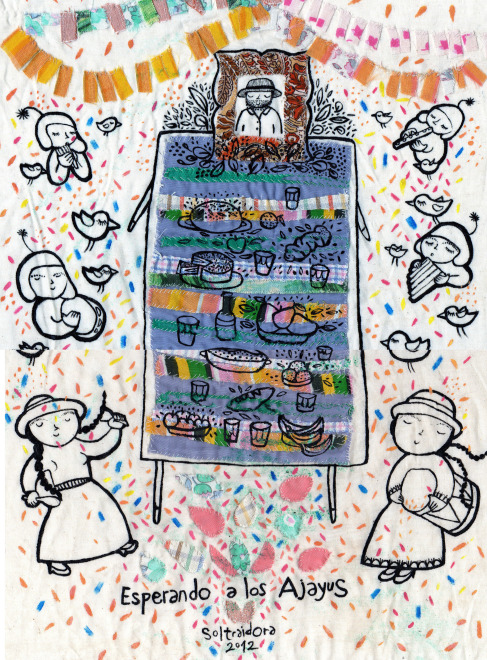 Esperando a los Ajayus
Soltraidora
2012